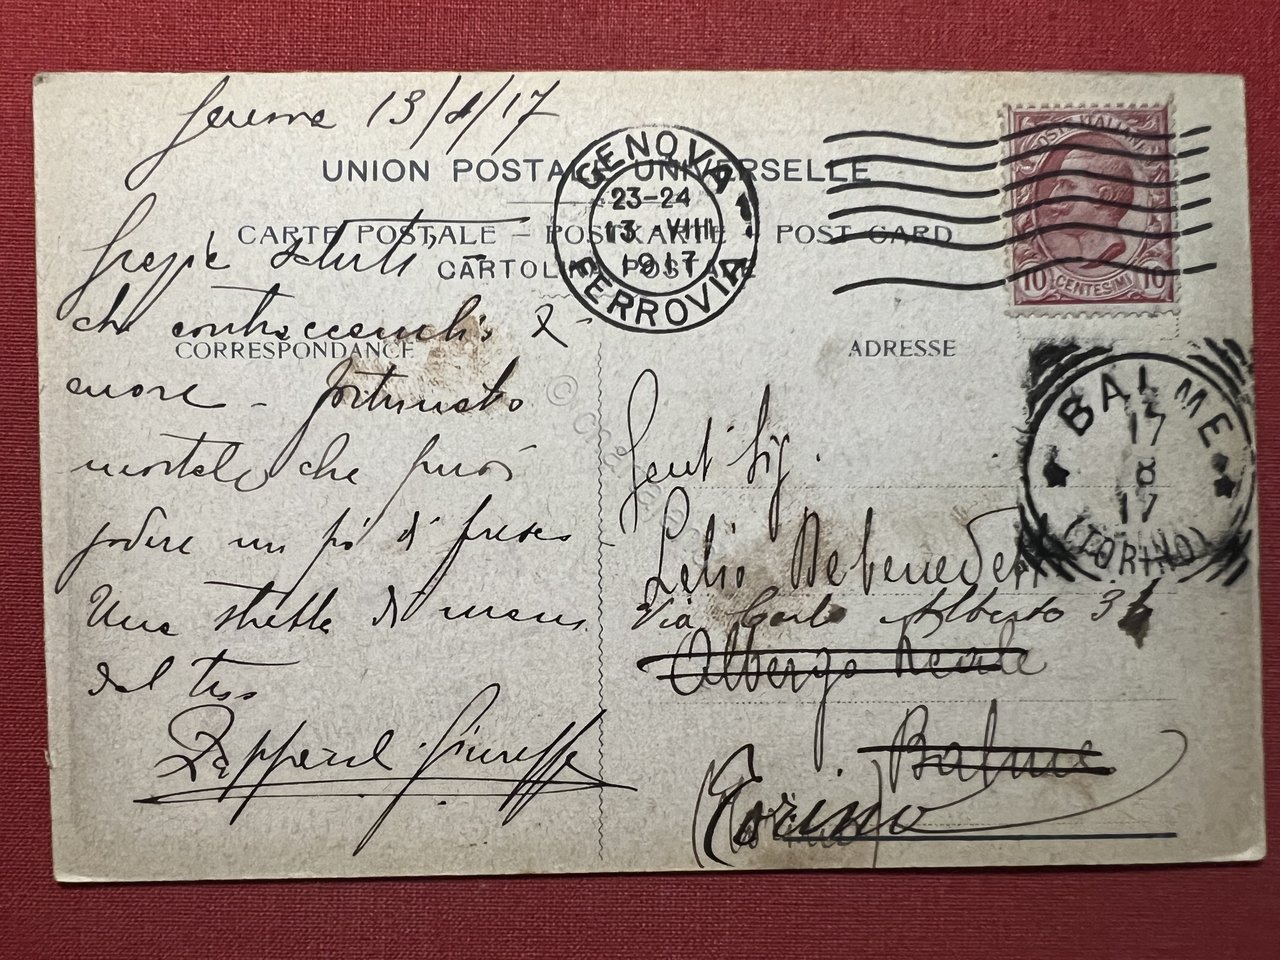 13/8/17
UNION POSTALE UNIVERSELLE
CARTE POSTALE – POSTKARTE – POST CARD
CARTOLINA POSTALE
CORRESPONDANCE
ADRESSE
GENOVA
23-24
13 · VIII
1917
FERROVIA
POSTE ITALIANE
10 CENTESIMI 10
BALME
17
8
17
(TORINO)
Grazie saluti
che contraccambio di
cuore – fortunato
mortale che puoi
godere un po di fresco –
Una stretta di mano
dal tuo
Giuseppe
Gent Sig.
Lelio Debenedetti
Via Carlo Alberto
Albergo Reale
Balme
(Torino)